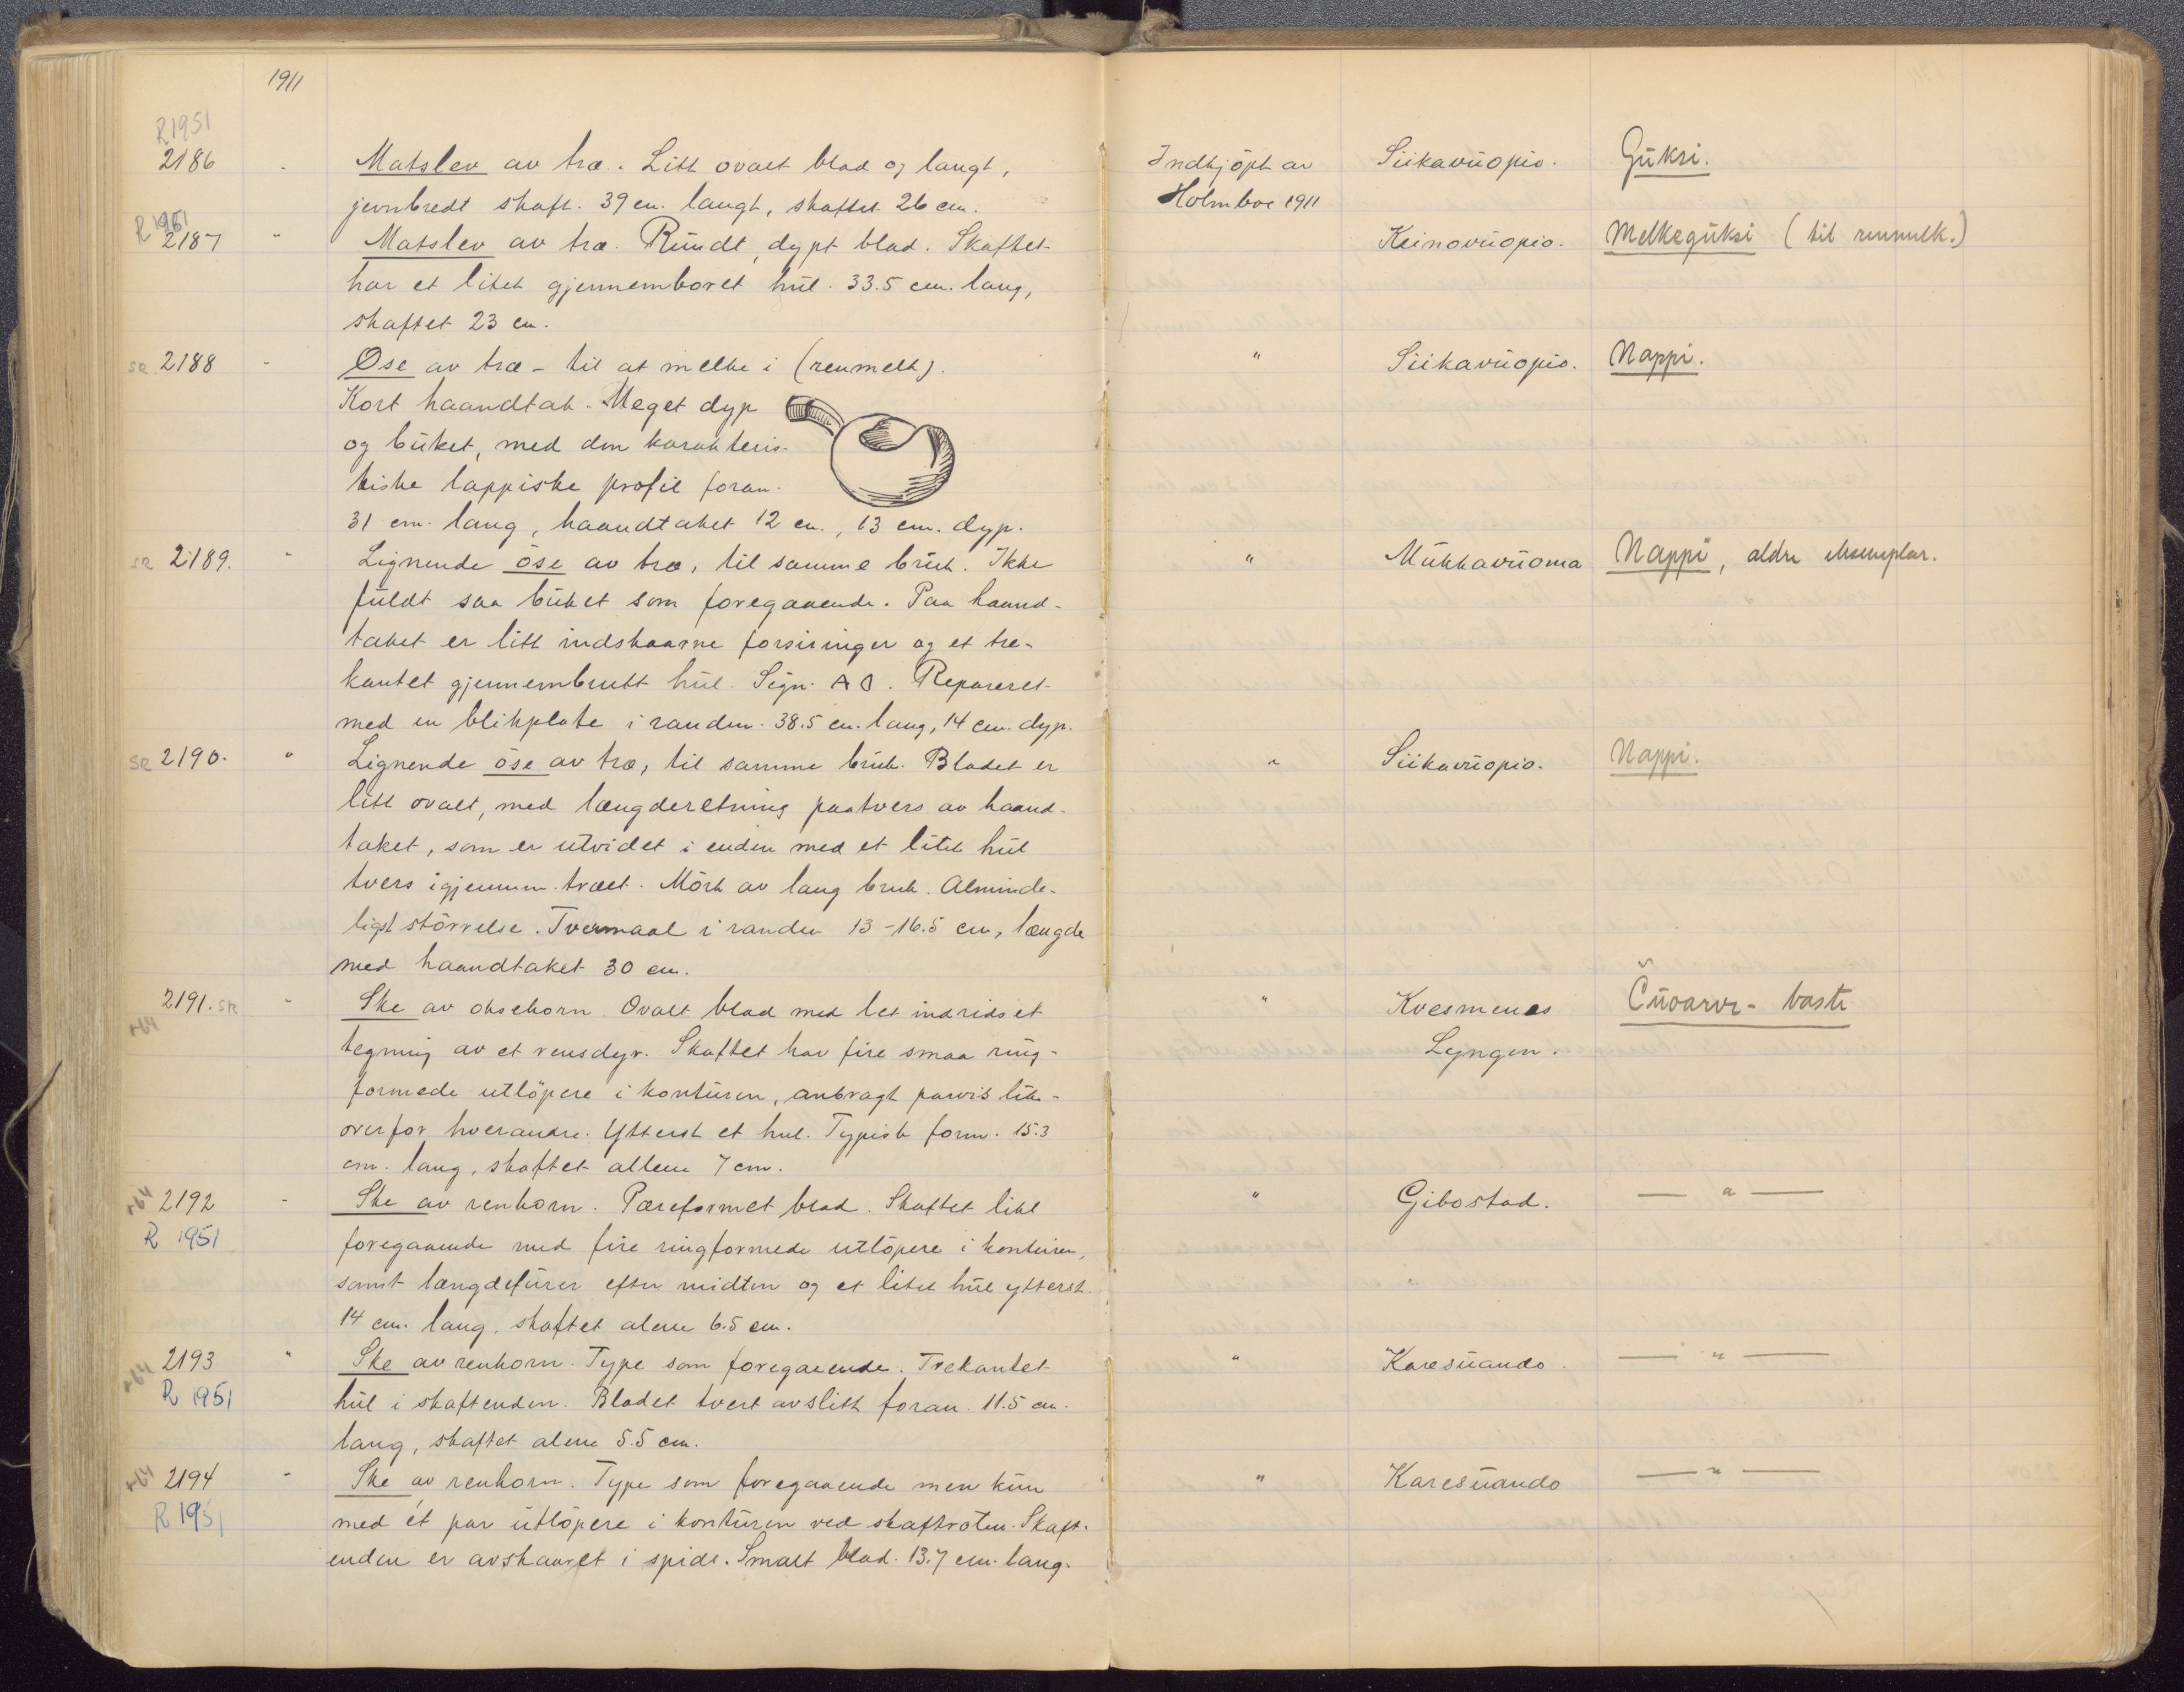 1911
R 1951
2186 " Matslev av træ. Litt ovalt blad og langt, Indkjöpt av Siikavuopio. Guksi.
jevnbredt skaft. 39 cm. langt, skaftet 26 cm. Holmboe 1911
R 1951
2187 " Matslev av træ. Rundt, dypt blad. Skaftet Keinovuopio. Melkeguksi (til renmelk.)
har et litet gjennemboret hul. 33.5 cm. lang,
skaftet 23 cm.
SR 2188 " Øse av træ - til at melke i (renmelk). " Siikavuopio. Nappi.
Kort haandtak. Meget dyp
og buket, med den karakteris-
tiske lappiske profil foran.
31 cm. lang, haandtaket 12 cm., 13 cm. dyp.
SR 2189. " Lignende öse av træ, til samme bruk. Ikke " Mukkavuoma Nappi, ældre eksemplar.
fuldt saa buket som foregaaende. Paa haand-
taket er litt indskaarne forsiringer og et tre-
kantet gjennembrutt hul. Sign. A O. Reparert
med en blikplate i randen. 38.5 cm. lang, 14 cm. dyp.
SR 2190. " Lignende öse av træ, til samme bruk. Bladet er " Siikavuopio. Nappi.
litt ovalt, med længderetning paatvers av haand-
taket, som er utvidet i enden med et litet hul
tvers igjennem træet. Mörk av lang bruk. Alminde-
ligst störrelse. Tvermaal i randen 13-16.5 cm, længde
med haandtaket 30 cm.
2191. SR " Ske av oksehorn. Ovalt blad med let indridset " Kvesmenes Čuoarve-baste
r64 tegning av et rensdyr. Skaftet har fire smaa ring- Lyngen.
formede utlöpere i konturen, anbragt parvis like-
overfor hverandre. Ytterst et hul. Typisk form. 15.3
cm. lang, skaftet allene 7 cm.
r64 2192 " Ske av renhorn. Pæreformet blad. Skaftet likt " Gibostad. — " —
R 1951 foregaaende med fire ringformede utlöpere i konturen,
samt længdefurer efter midten og et litet hul ytterst.
14 cm. lang, skaftet alene 6.5 cm.
r64 2193 " Ske av renhorn. Type som foregaaende. Trekantet " Karesuando. — " —
R 1951 hul i skaftenden. Bladet tvert avslitt foran. 11.5 cm.
lang, skaftet alene 5.5 cm.
r64 2194 " Ske av renhorn. Type som foregaaende men kun " Karesuando — " —
R 1951 med ét par utlöpere i konturen ved skaftroten. Skaft-
enden er avskaaret i spids. Smalt blad. 13.7 cm. lang.